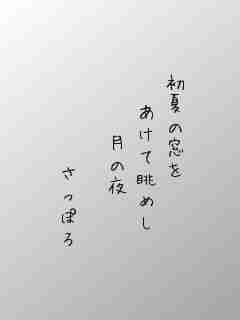 初夏の窓を
あけて眺めし
月の夜
さっぽろ